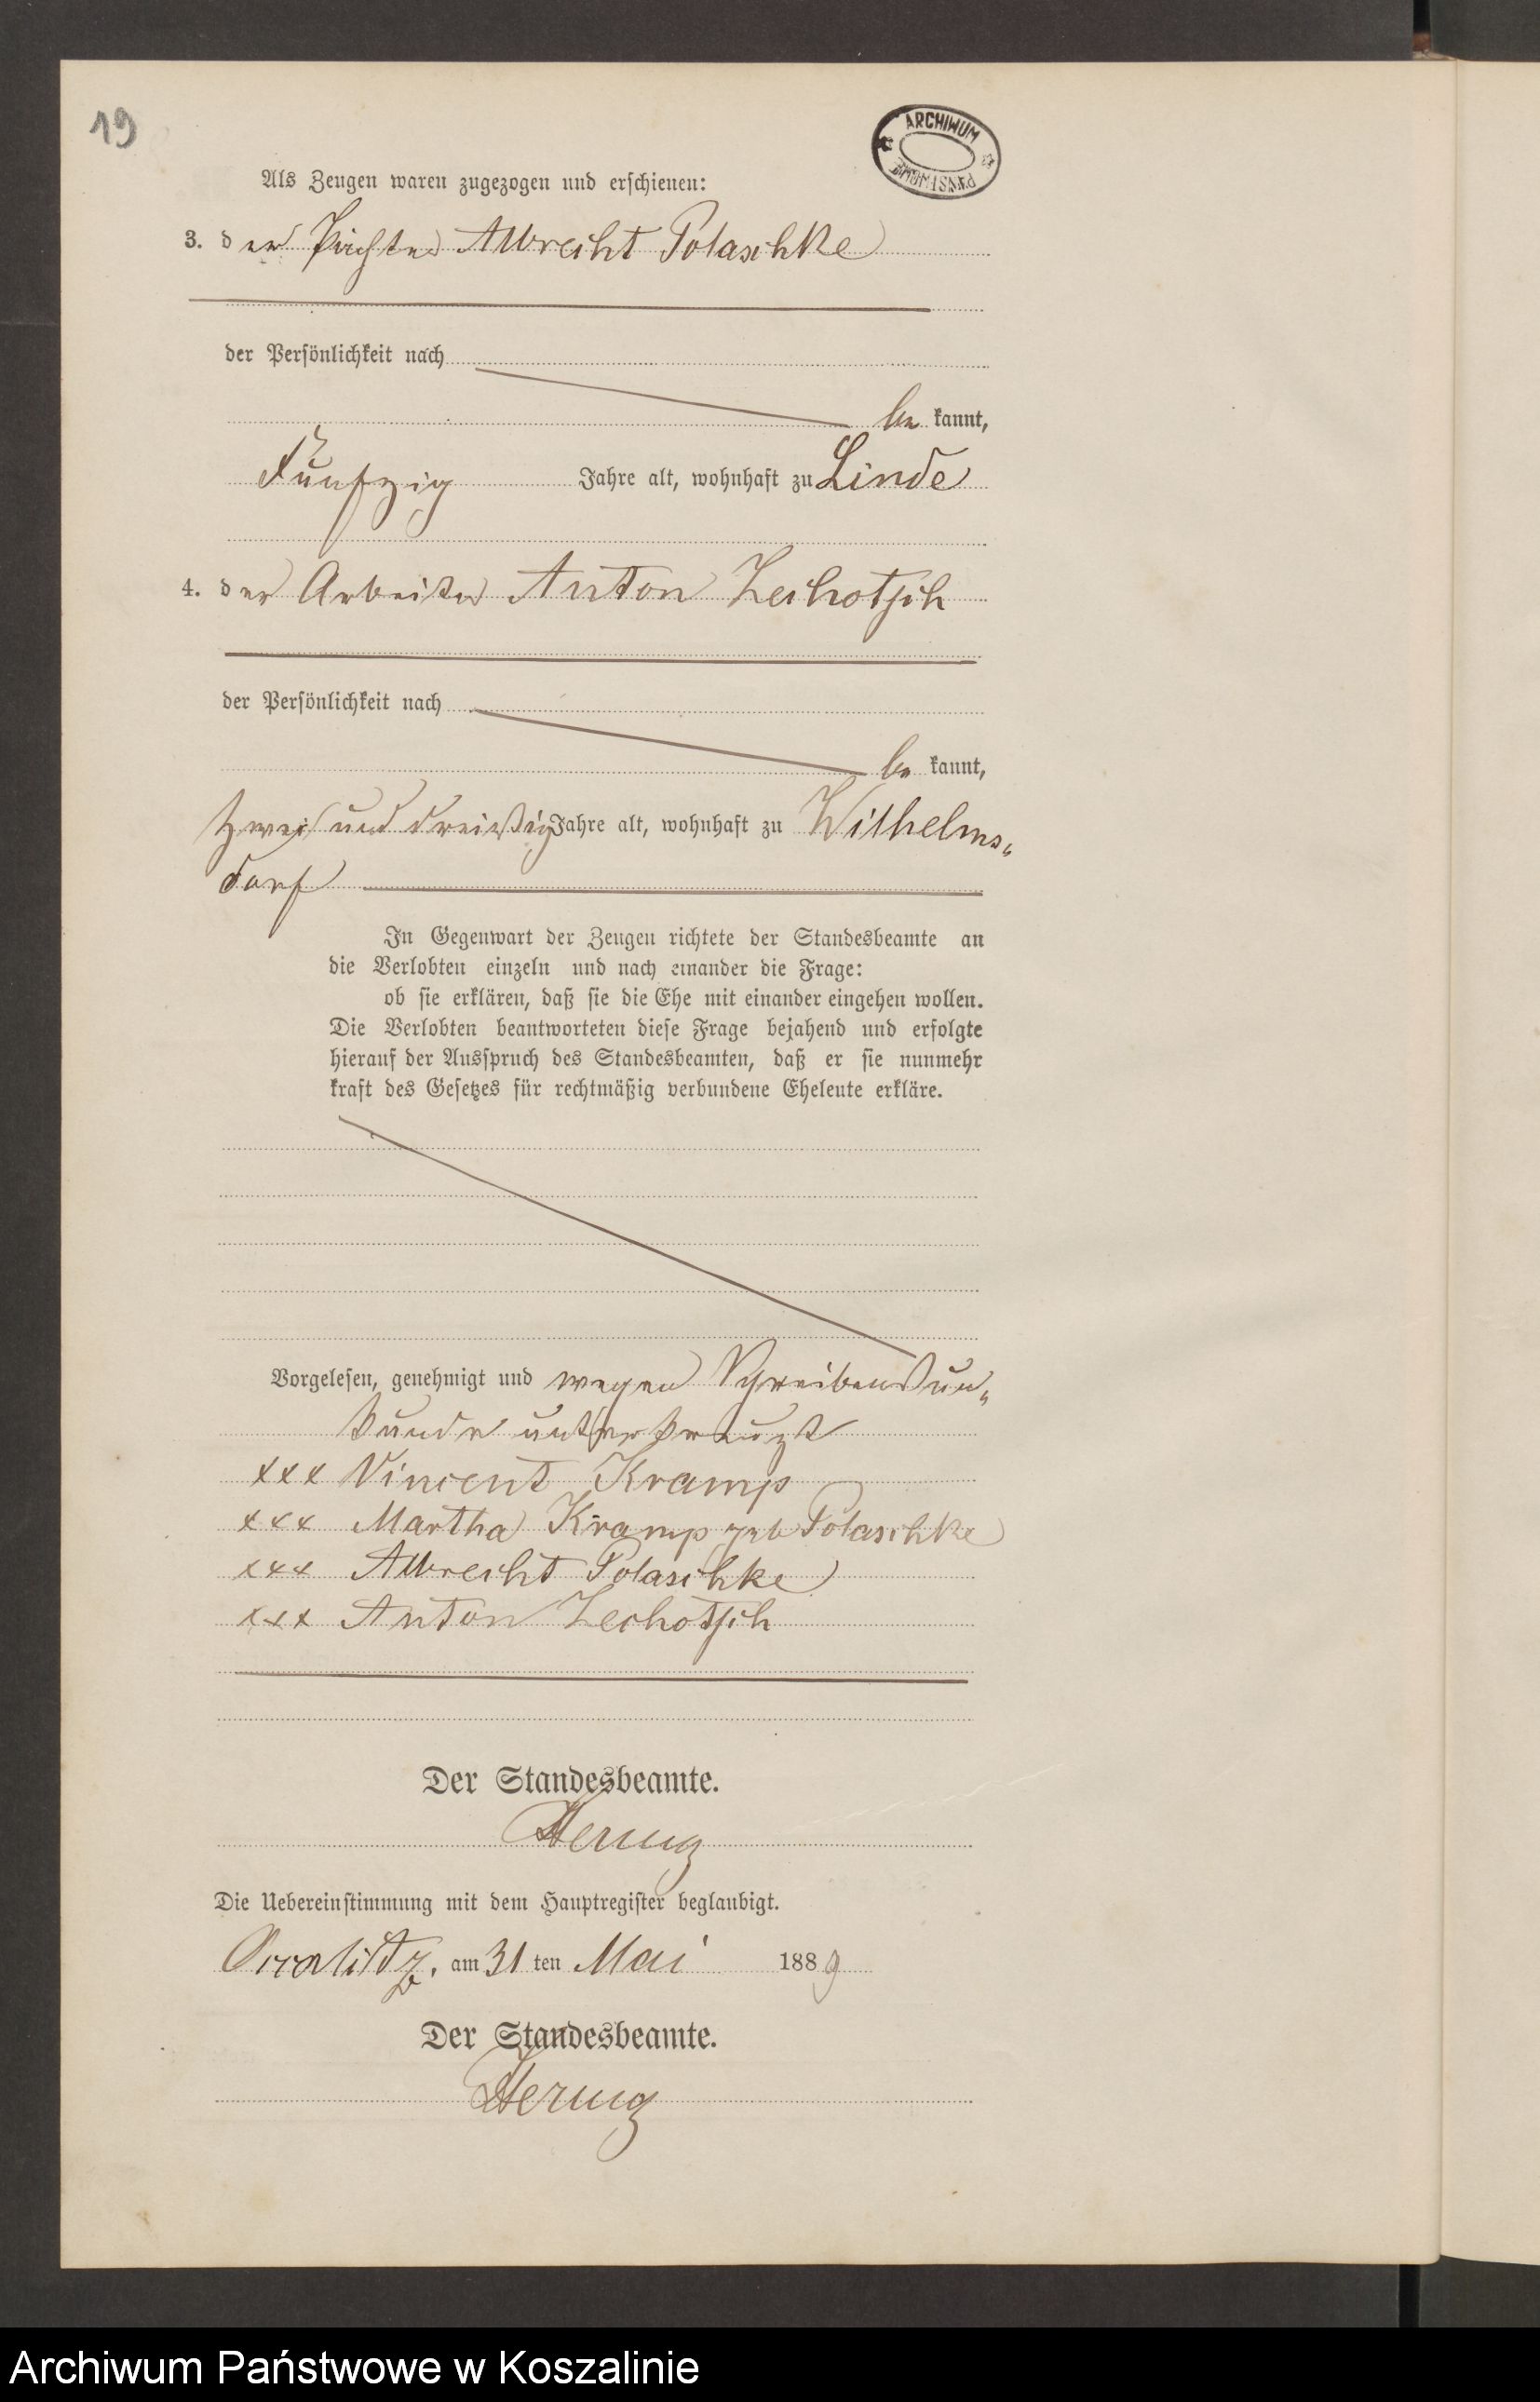 19
ARCHIWUM
PAŃSTWOWE
Als Zeugen waren zugezogen und erschienen:
3. der Pächter Albrecht Polaschke
der Persönlichkeit nach
be kannt,
Fünfzig Jahre alt, wohnhaft zu Linde
4. der Arbeiter Anton Zechotsch
der Persönlichkeit nach
be kannt,
zwei und dreißig Jahre alt, wohnhaft zu Wilhelms-
dorf
In Gegenwart der Zeugen richtete der Standesbeamte an
die Verlobten einzeln und nach einander die Frage:
ob sie erklären, daß sie die Ehe mit einander eingehen wollen.
Die Verlobten beantworteten diese Frage bejahend und erfolgte
hierauf der Ausspruch des Standesbeamten, daß er sie nunmehr
kraft des Gesetzes für rechtmäßig verbundene Eheleute erkläre.
Vorgelesen, genehmigt und wegen Schreibensun-
kunde unterkreuzt
xxx Vincent Kramp
xxx Martha Kramp geb Polaschke
xxx Albrecht Polaschke
xxx Anton Zechotsch
Der Standesbeamte.
Die Uebereinstimmung mit dem Hauptregister beglaubigt.
am 31 ten Mai 1889
Der Standesbeamte.
Archiwum Państwowe w Koszalinie